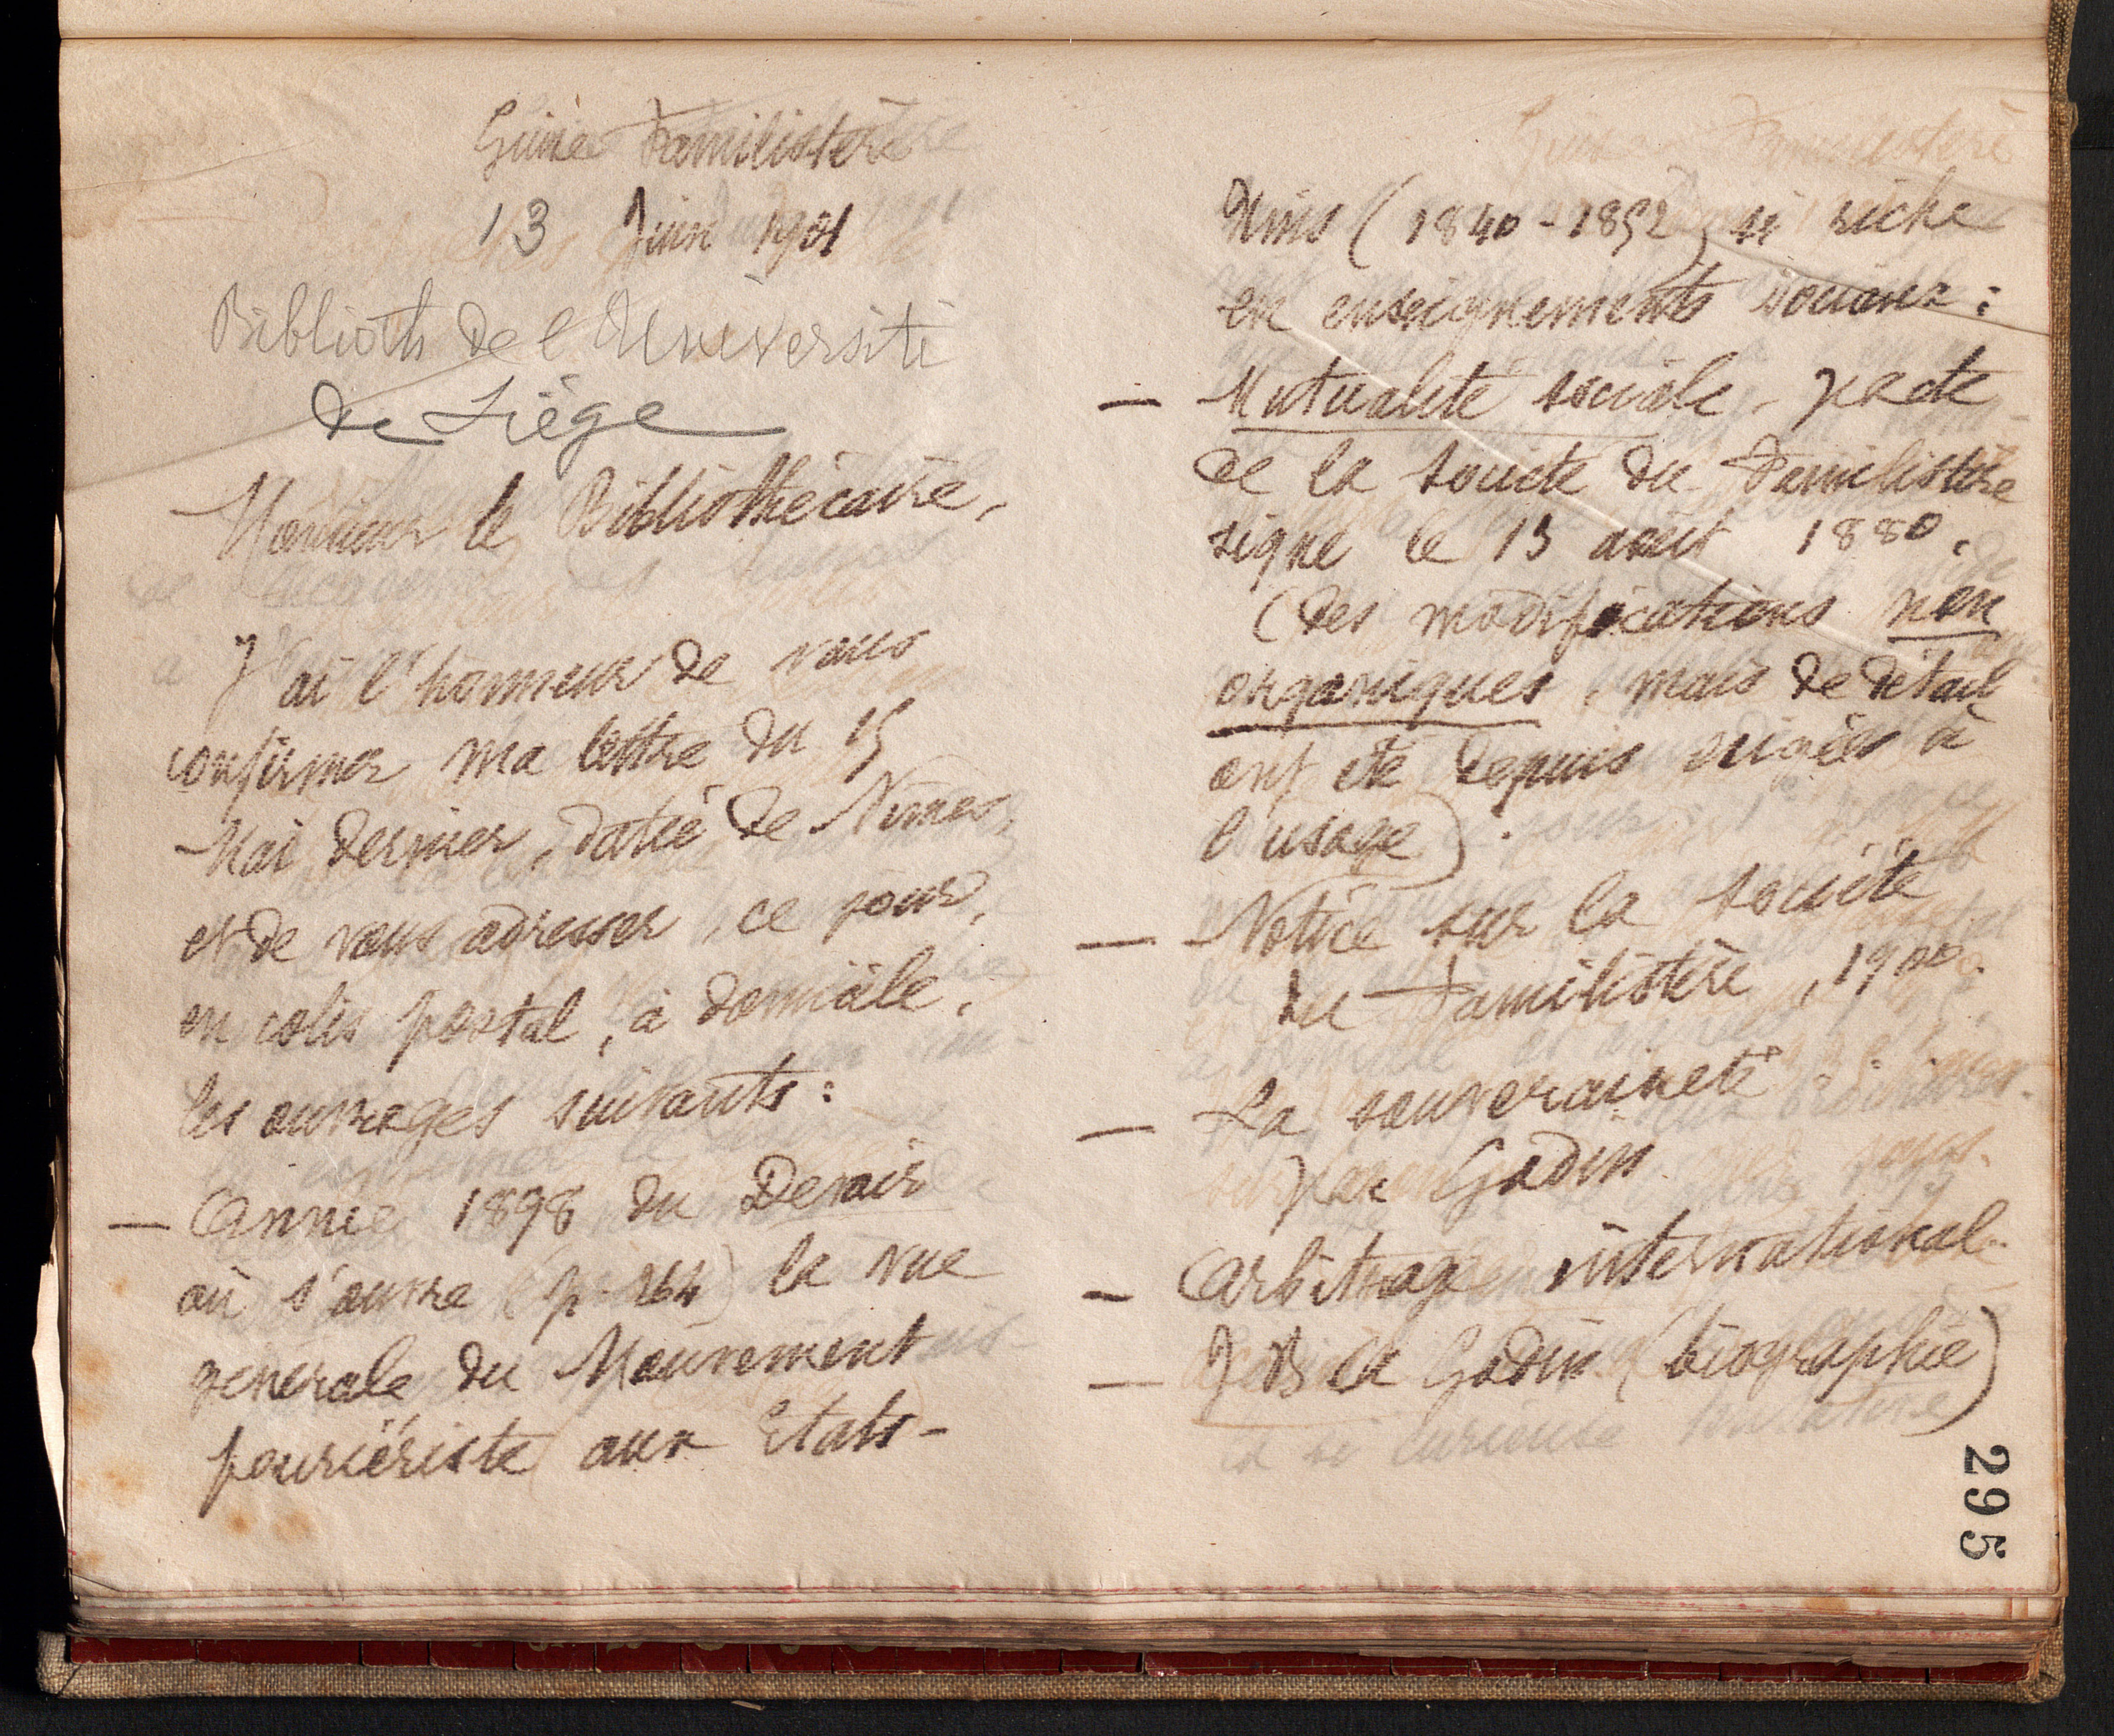 Guise Familistère
13 Juin 1901
Biblioth de l'Université
de Liège
Monsieur le Bibliothécaire,
J'ai l'honneur de vous
confirmer ma lettre du 15
Mai dernier, datée de Nîmes,
et de vous adresser, ce jour,
en colis postal, à domicile,
les ouvrages suivants :
— Année 1898 du Devoir
où s'ouvre (p. 264) la vue
générale du Mouvement
fouriériste aux Etats-
Unis (1840-1852) si riche
en enseignements sociaux :
— Mutualité sociale, pacte
de la société du Familistère
signé le 13 août 1880.
(Des modifications non
organiques, mais de détail
ont été depuis exigées à
l'usage).
— Notice sur la société
du Familistère, 1900.
— La souveraineté
par Godin
— Arbitrage international.
— J Bte A Godin (biographie)
295